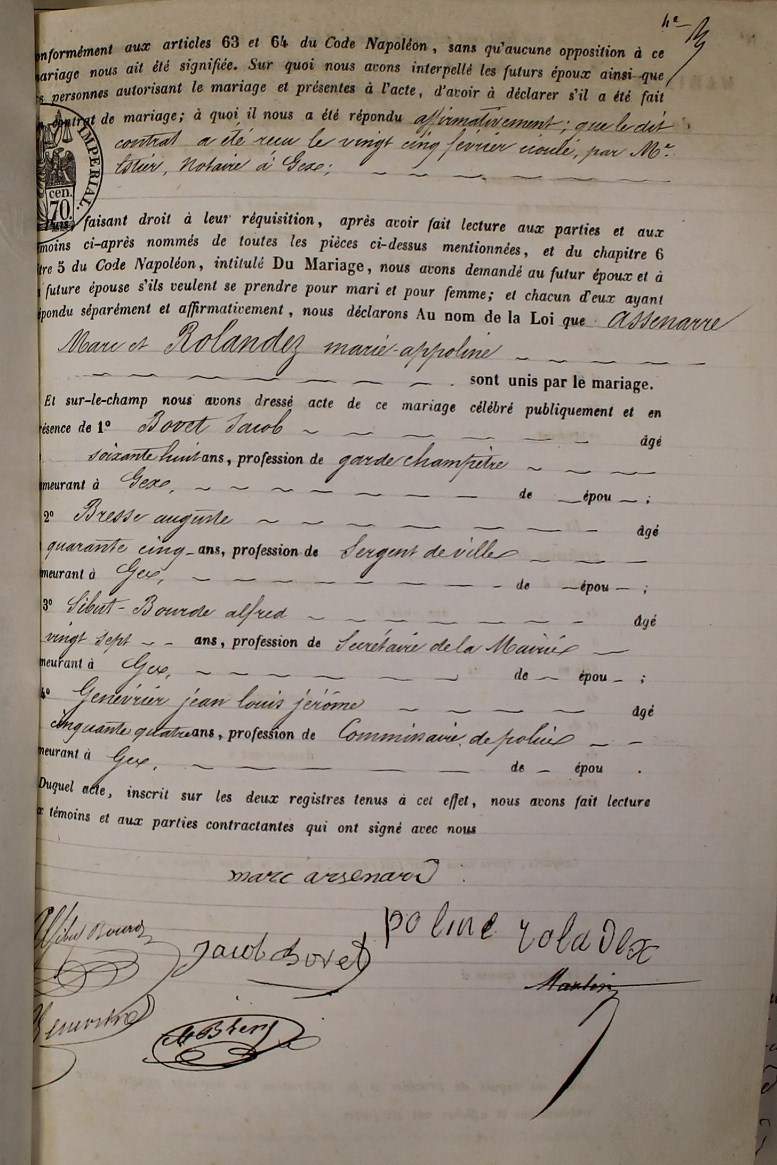 onformément aux articles 63 et 64 du Code Napoléon, sans qu'aucune opposition à ce
ariage nous ait été signifiée. Sur quoi nous avons interpellé les futurs époux ainsi que
s personnes autorisant le mariage et présentes à l'acte, d'avoir à déclarer s'il a été fait
contrat de mariage; à quoi il nous a été répondu affirmativement; que le dit
contrat a été recu le vingt cinq février écoulé, par Mr
notaire à Gex;
IMPERIAL.
cen.
70.
faisant droit à leur réquisition, après avoir fait lecture aux parties et aux
moins ci-après nommés de toutes les pièces ci-dessus mentionnées, et du chapitre 6
tre 5 du Code Napoléon, intitulé Du Mariage, nous avons demandé au futur époux et à
future épouse s'ils veulent se prendre pour mari et pour femme; et chacun d'eux ayant
épondu séparément et affirmativement, nous déclarons Au nom de la Loi que Assenarre
Marc et Rolandez marie appoline
sont unis par le mariage.
Et sur-le-champ nous avons dressé acte de ce mariage célébré publiquement et en
ésence de 1° Bovet Jacob âgé
soixante huit ans, profession de garde champêtre
meurant à Gex, de épou ;
2° Bresse auguste âgé
quarante cinq ans, profession de Sergent de ville
meurant à Gex, de épou ;
3° Sibut-Bourde alfred âgé
vingt sept ans, profession de Secrétaire de la Mairie
meurant à Gex, de épou ;
4° Genevrier jean louis jérôme âgé
cinquante quatre ans, profession de Commissaire de police
meurant à Gex, de épou .
Duquel acte, inscrit sur les deux registres tenus à cet effet, nous avons fait lecture
x témoins et aux parties contractantes qui ont signé avec nous
marc arsenard
poline roladex
Jacob Bovet
Martin